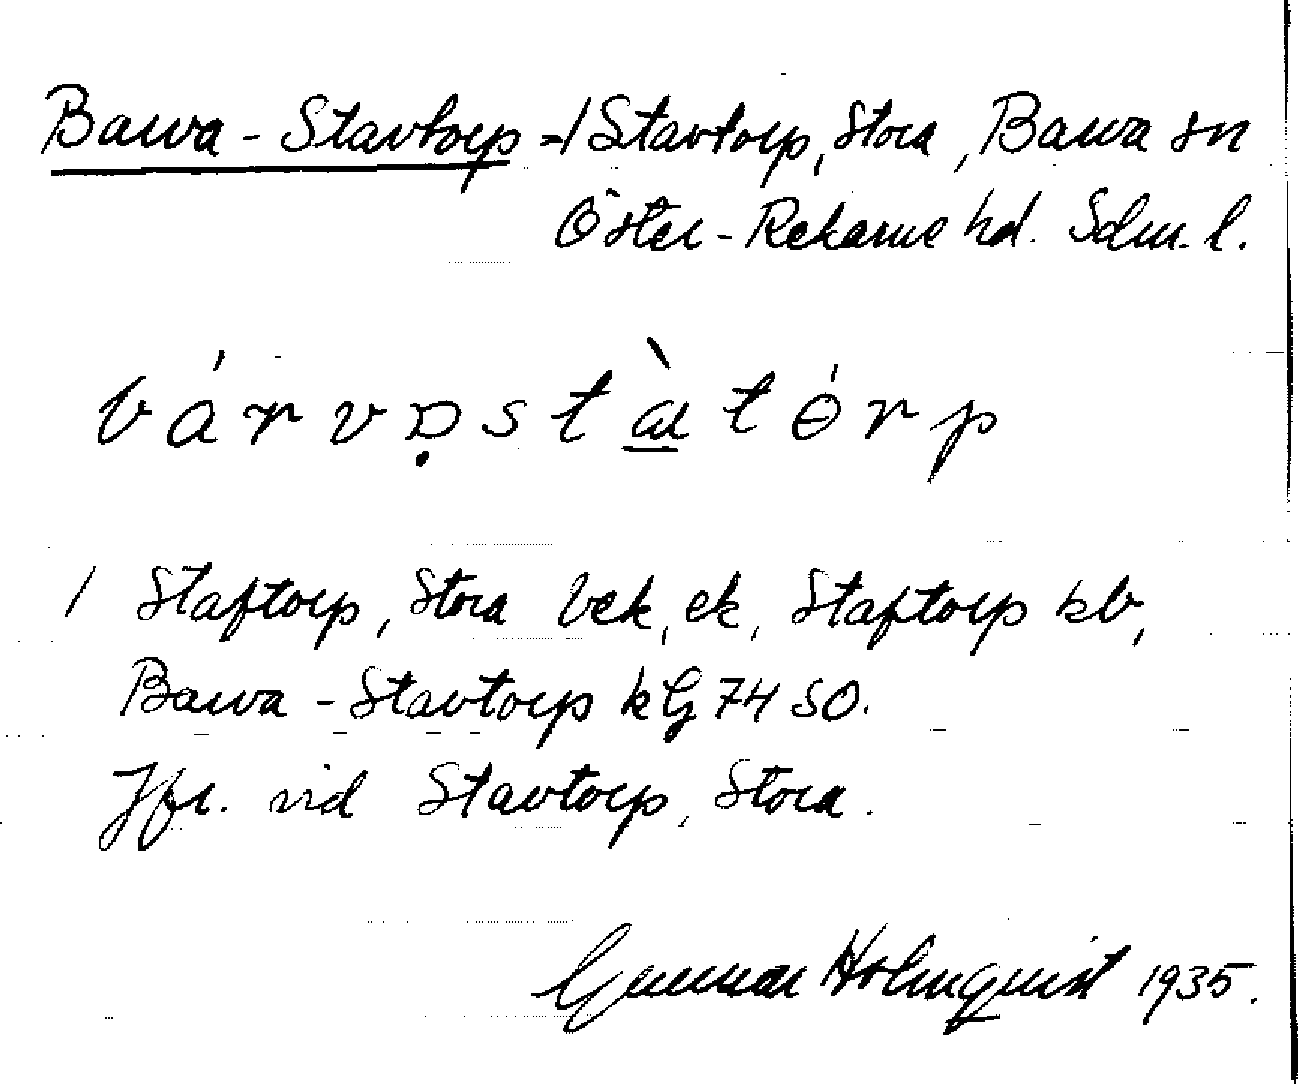 Barva - Stavtorp =/ Stavtorp, Stora, Barva sn
Öster-Rekarne hd. Sdm. l.
bárvɒ̣stàtɵ́rp
/ Staftorp, Stora bek, ek, Staftorp kb,
Barva - Stavtorp kG 74 SO.
Jfr. vid Stavtorp, Stora.
Gunnar Holmquist 1935.